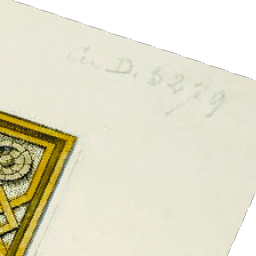 Cu. D. 5279